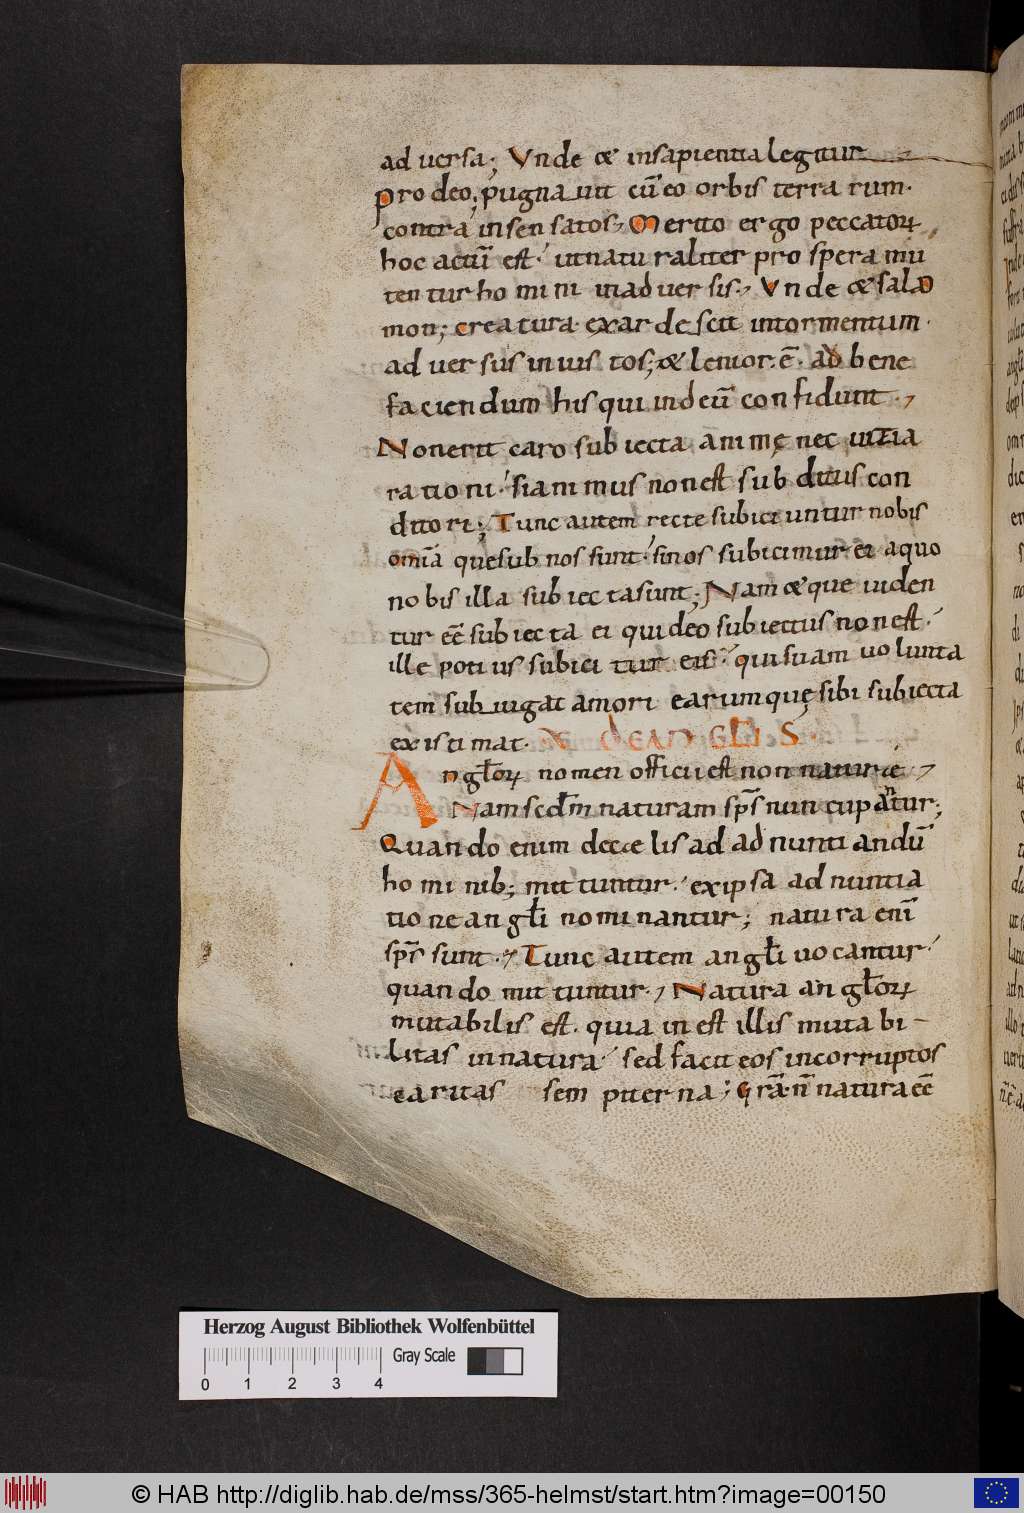 ad versa; Vnde & insapientia legitur
Pro deo; pugnauit cū eo orbis terra rum·
contra insensatos· Merito ergo peccatoꝝ
hoc actū est· ut natu raliter prospera mu
ten tur ho mi ni inad uer sis· Vnde & salo
mon; creatura exar de scit in tormentum·
ad uer sus in ius tos; & lenior·ē· ad bene
fa cien dum his qui in deū con fidunt·
Non erit caro sub iecta animę nec uitia
ra tio ni· si ani mus non est sub ditus con
ditori; Tunc autem recte subici untur nobis
omīa que sub nos sunt· si nos subicimur ei a quo
no bis illa sub iec ta sunt; Nam & que uiden
tur eē sub iec ta ei qui deo sub iectus non est·
ille poti us subici tur eis· qui suam uo lunta
tem sub iugat amori earum quę sibi subiecta
ex is ti mat· X DE ANGELIS·
Angłoꝝ nomen officii est non naturæ
Nam scdm naturam sp̄s nun cupantur;
Quando enim de cælis ad ad nunti andū
ho mi nib; mit tuntur· ex ipsa ad nuntia
tio ne angłi nominantur; natura enī
sp̄s sunt· Tunc autem angłi uo cantur·
quan do mit tuntur· Natura angłoꝝ
mutabilis est· quia in est illis muta bi-
litas in natura· sed facit eos incorruptos
caritas sem piter na; Grā·n̄ natura eē
Herzog August Bibliothek Wolfenbüttel
Gray Scale
0 1 2 3 4
© HAB http://diglib.hab.de/mss/365-helmst/start.htm?image=00150